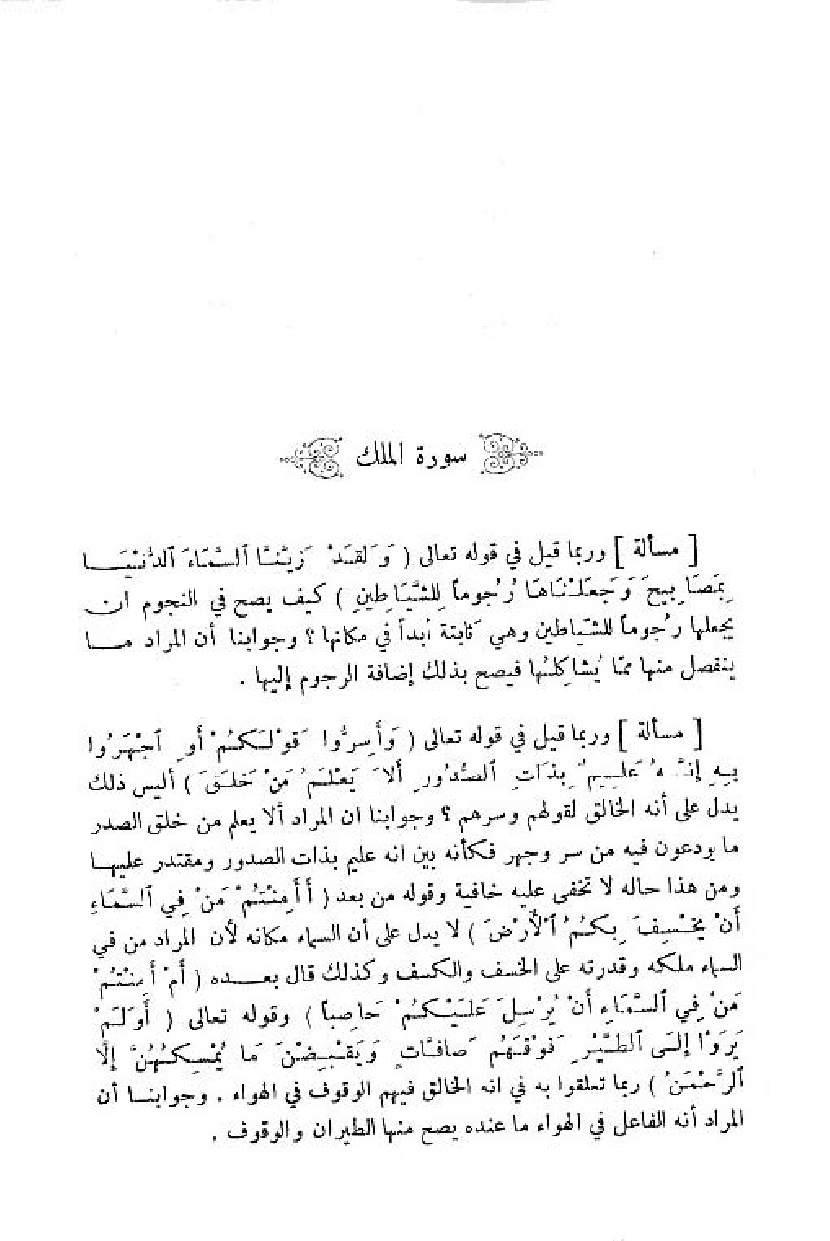 سورة الملك
[ مسألة ] وربما قيل في قوله تعالى ( وَلَقَدْ زَيَّنَّا ٱلسَّمَاءَ ٱلدُّنْيَا
بِمَصَابِيحَ وَجَعَلْنَاهَا رُجُوماً لِلشَّيَاطِينِ ) كيف يصح في النجوم ان
يجعلها رجوماً للشياطين وهي ثابتة أبداً في مكانها ؟ وجوابنا أن المراد ما
ينفصل منها ممّا يُشاكلُها فيصح بذلك إضافة الرجوم إليها .
[ مسألة ] وربما قيل في قوله تعالى ( وَأَسِرُّوا قَوْلَكُمْ أَوِ ٱجْهَرُوا
بِهِ إِنَّهُ عَلِيمٌ بِذَاتِ ٱلصُّدُورِ أَلَا يَعْلَمُ مَنْ خَلَقَ ) أليس ذلك
يدل على أنه الخالق لقولهم وسرهم ؟ وجوابنا ان المراد ألا يعلم من خلق الصدر
ما يودعون فيه من سر وجهر فكأنه بين انه عليم بذات الصدور ومقتدر عليها
ومن هذا حاله لا تخفى عليه خافية وقوله من بعد ( أَأَمِنْتُمْ مَنْ فِي ٱلسَّمَاءِ
أَنْ يَخْسِفَ بِكُمُ ٱلْأَرْضَ ) لا يدل على أن السماء مكانه لأن المراد من في
السماء ملكه وقدرته على الخسف والكسف وكذلك قال بعده ( أَمْ أَمِنْتُمْ
مَنْ فِي ٱلسَّمَاءِ أَنْ يُرْسِلَ عَلَيْكُمْ حَاصِباً ) وقوله تعالى ( أَوَلَمْ
يَرَوْا إِلَى ٱلطَّيْرِ فَوْقَهُمْ صَافَّاتٍ وَيَقْبِضْنَ مَا يُمْسِكُهُنَّ إِلَّا
ٱلرَّحْمَنُ ) ربما تعلقوا به في انه الخالق فيهم الوقوف في الهواء . وجوابنا أن
المراد أنه الفاعل في الهواء ما عنده يصح منها الطيران والوقوف .